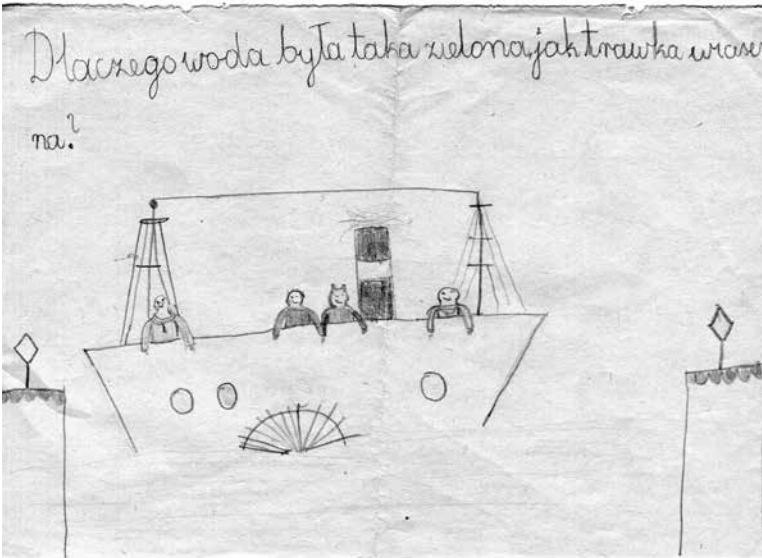 Dlaczego woda była taka zielona, jak trawka wiosen
na?